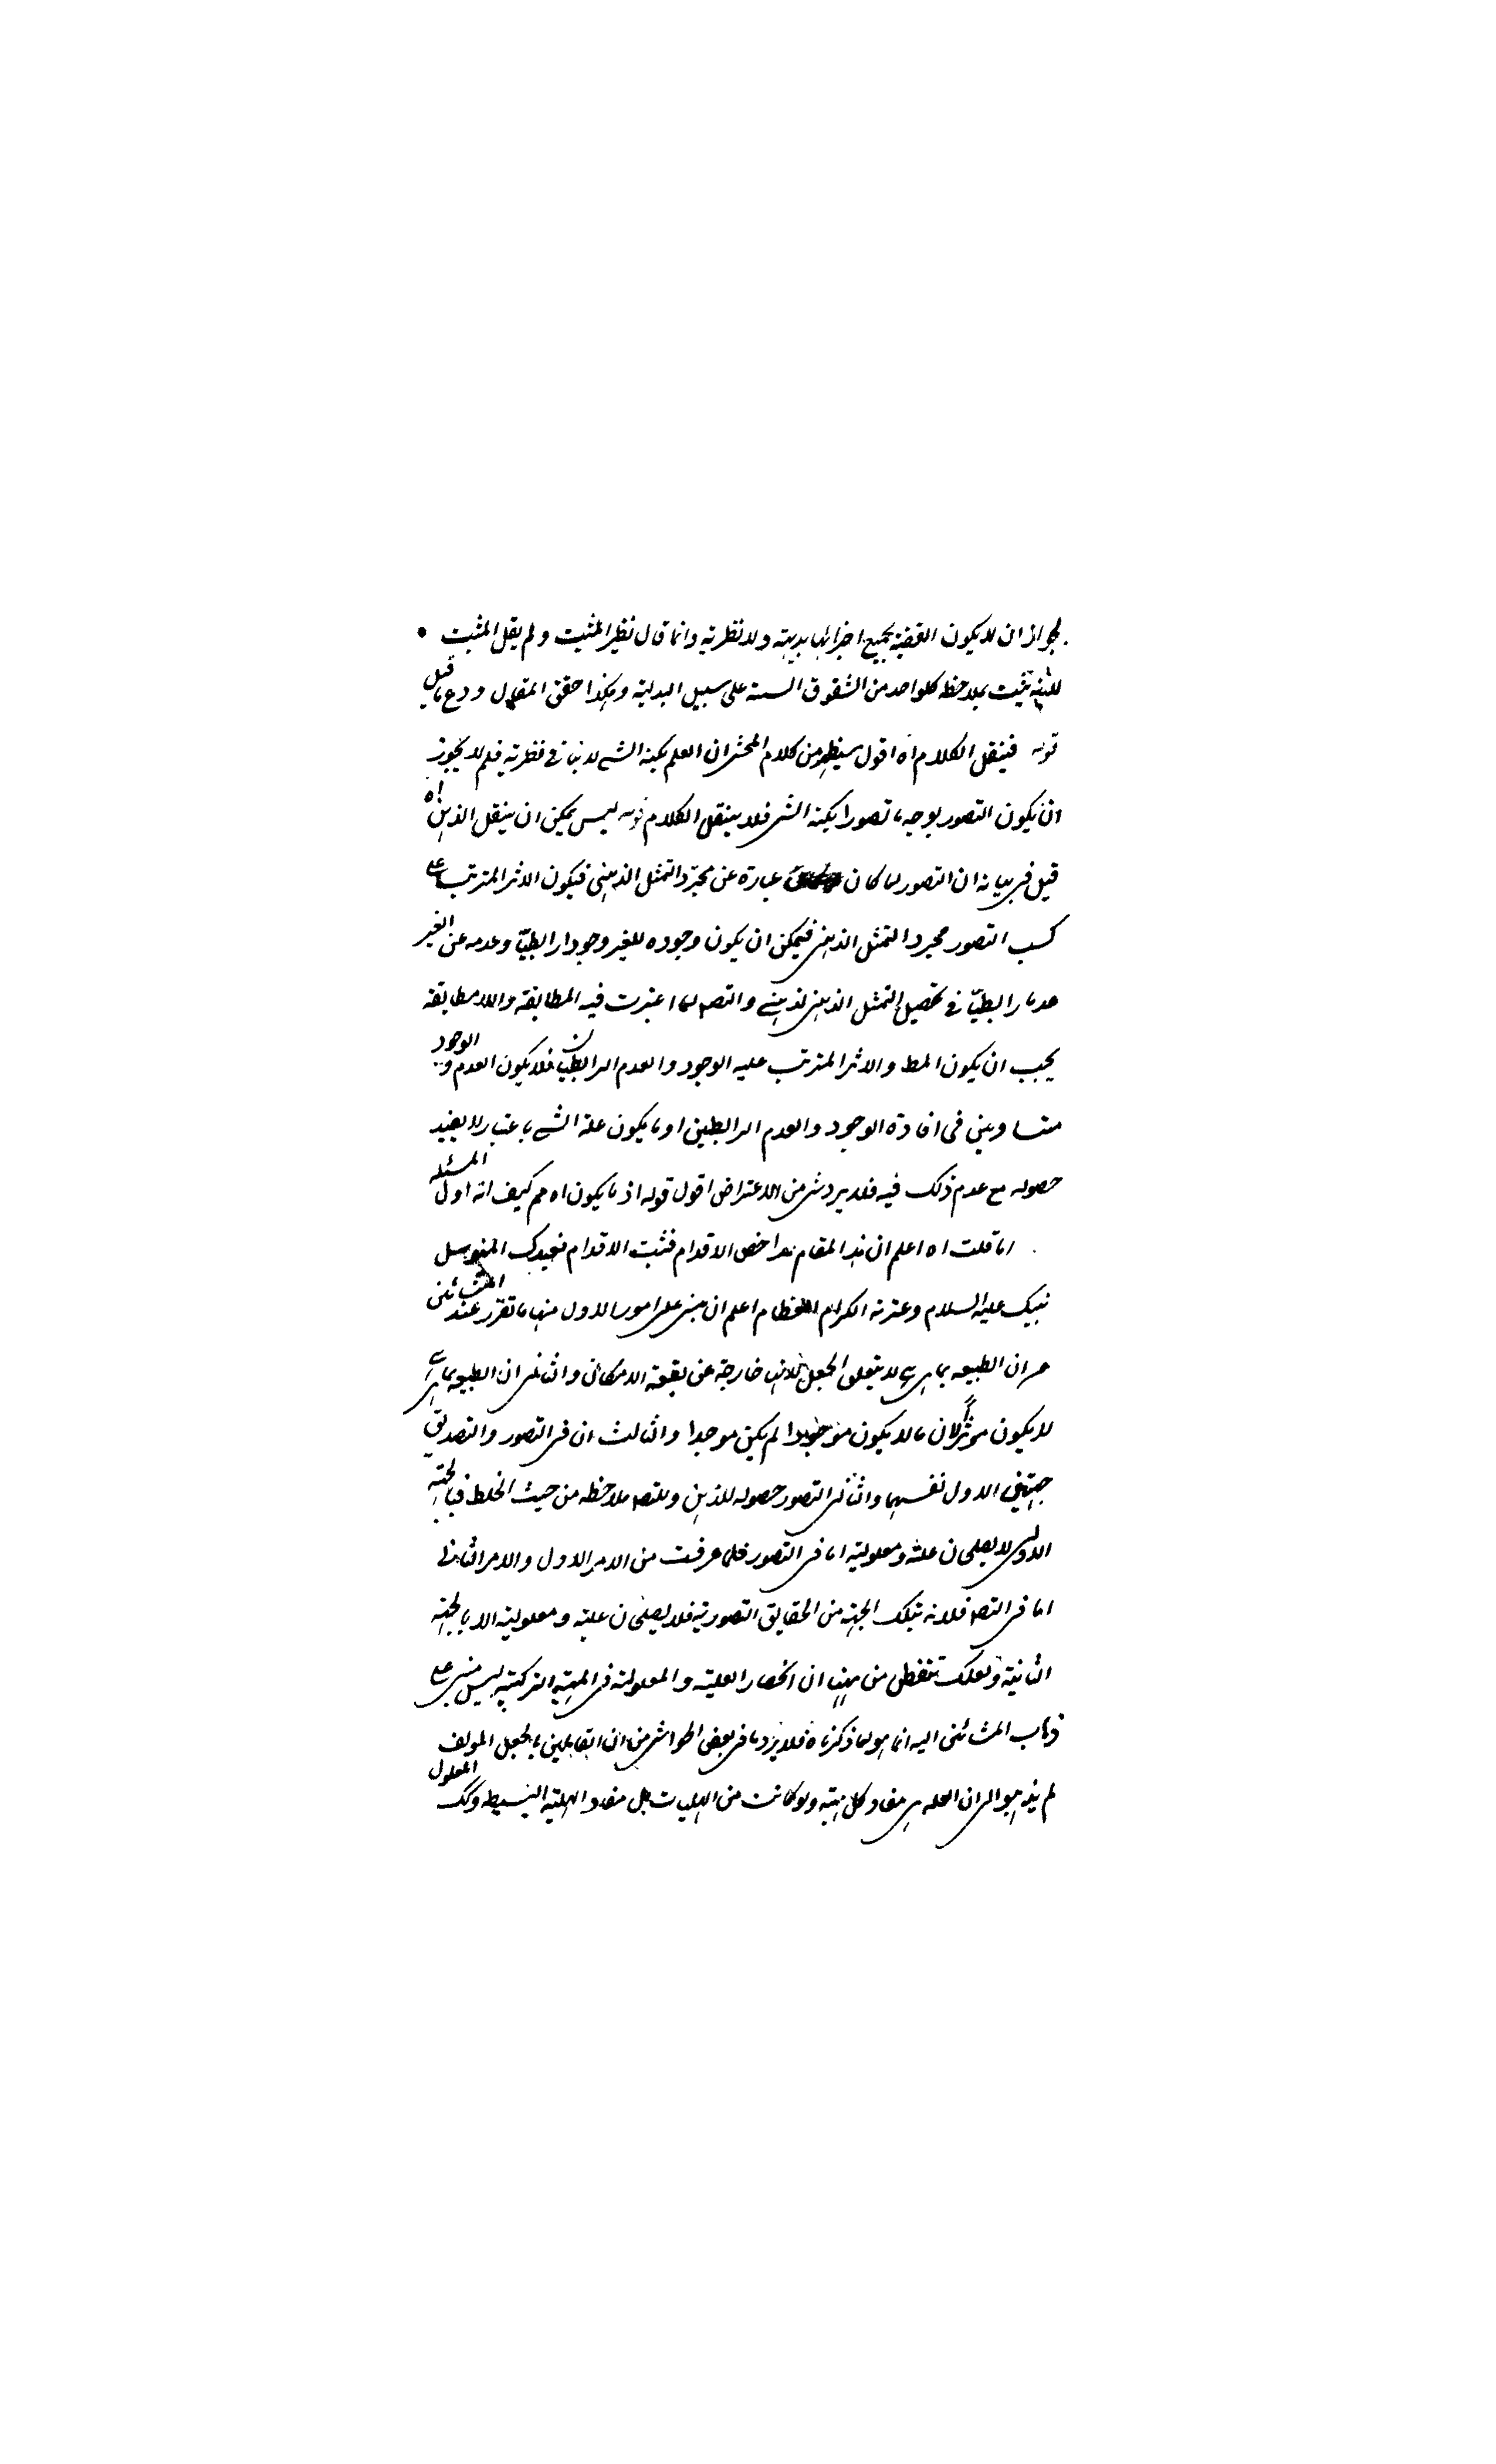 لجواز ان لا يكون القضية بجميع اجزائها بديهية ولا نظرية وانما قال نظير المثبت ولم يقل المثبت
للبنية يثبت بملاحظة كلواحد من الشقوق الستة على سبيل البدلية وهكذا حقق المقال ودع ما قيل
قوله فينقل الكلام اه اقول سيظهر من كلام المحشى ان العلم بكنه الشے لا ينافى نظرية فلم لا يجوز
ان يكون التصور بوجه ما تصورا بكنه الشى فلا ينقل الكلام قوله ليس يمكن ان ينقل الذهن اه
قيل فى بيانه ان التصور لما كان عبارة عن مجرد التمثل الذهنى فيكون الاثر المترتب على
كسب التصور مجرد التمثل الذهنى فيمكن ان يكون وجوده للغير وجودا رابطيا وعدمه عن الغير
عدما رابطيا فى تحصيل التمثل الذهنى لذهنے والتصـ لما اعتبرت فيه المطابقة واللامطابقة
يجب ان يكون المط والاثر المترتب عليه الوجود والعدم الرابطيان فلا يكون العدم والوجود
متساويين فى افادة الوجود والعدم الرابطين او ما يكون علة الشے باعتبار لا يفيد
حصوله مع عدم ذلك فيه فلا يرد شى من الاعتراض اقول قوله اذ ما يكون اه مم كيف انه اول المسئله
اما قلت اه اعلم ان هذا المقام مداحض الاقدام فثبت الاقدام المتوسل
نبيك عليه السلام وعترته الكرام العظام اعلم ان مبنى على امور الاول منها ما تقرر عند المشائين
من ان الطبيعه بما هى هے لا يتعلق الجعل لانها خارجة عن بقعة الامكان والثانى ان الطبيعه بما هى هے
لا يكون موثرا لان ما لا يكون موجودا لم يكن موجدا والثالث ان فى التصور والتصديق
جهتين الاول نفسهما والثانى التصور حصوله للذهن وللتصـ ملاحظه من حيث الخلط فبالجهة
الاولى لا يصلحان علة ومعلولية اما فى التصور فلما عرفت من الامر الاول والامر الثانى
اما فى التصـ فلانه بتلك الجهة من الحقايق التصورية فلا يصلحان علية ومعلولية الا بالجهة
الثانية ولعلك تتفطن من ههنا ان انحصار العلية والمعلولية فى الهيئة التركيبية ليس مبنى على
ذهاب المشائين اليه انما هو لما ذكرناه فلا يرد ما فى بعض الحواشى من ان القايلين بالجعل المولف
لم يذهبوا الى ان العلة هى مفاد كل هيئة ولو كانت من الهليات بل مفاد الهلية البسيطه وكك المعلول